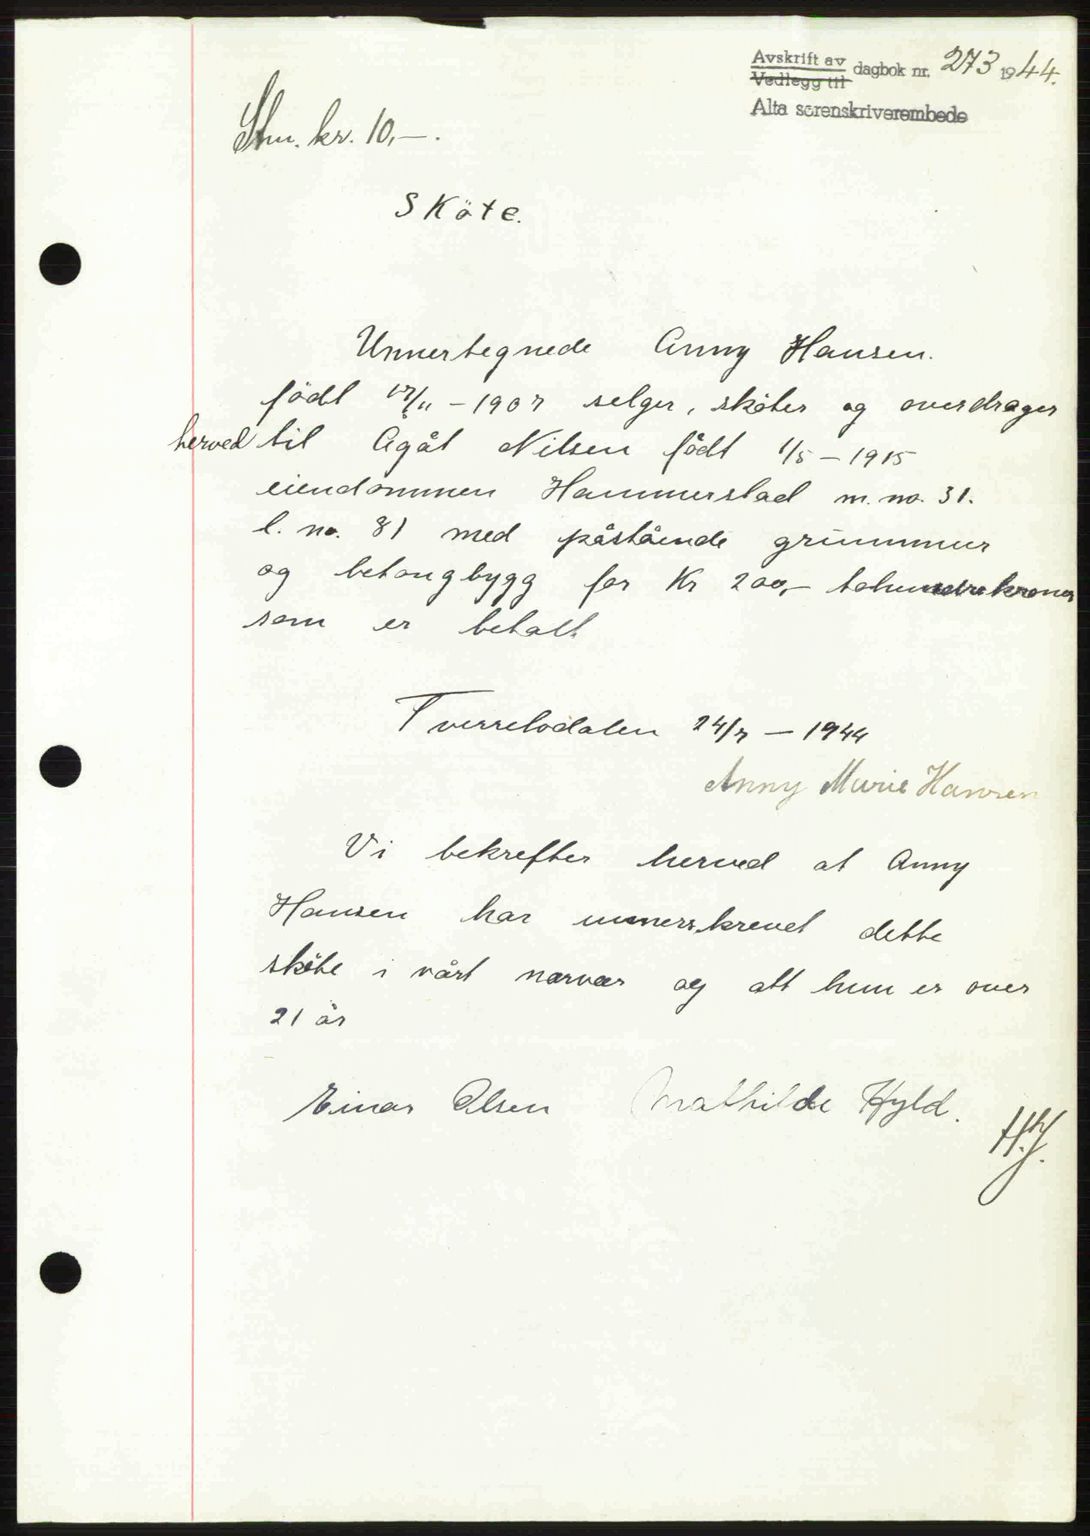 Avskrift av dagbok nr. 273 1944.
Vedlegg til
Alta sorenskriverembede
Stm. kr. 10,—.
Sköte.
Unnertegnede Anny Hansen.
födt 17/11 - 1907 selger, sköter og overdrager
herved til Ågåt Nilsen födt 1/5 - 1915
eiendommen Hammerstad m. no. 31.
l. no. 81 med påstående grunnmur
og betongbygg for Kr 200,- tohundrekroner
som er betalt
Tverrelvdalen 24/7 - 1944
Anny Marie Hansen
Vi bekrefter herved at Anny
Hansen har unnerskrevet dette
sköte i vårt nærvær og att hun er over
21 år
Einar Olsen Mathilde Kyld.